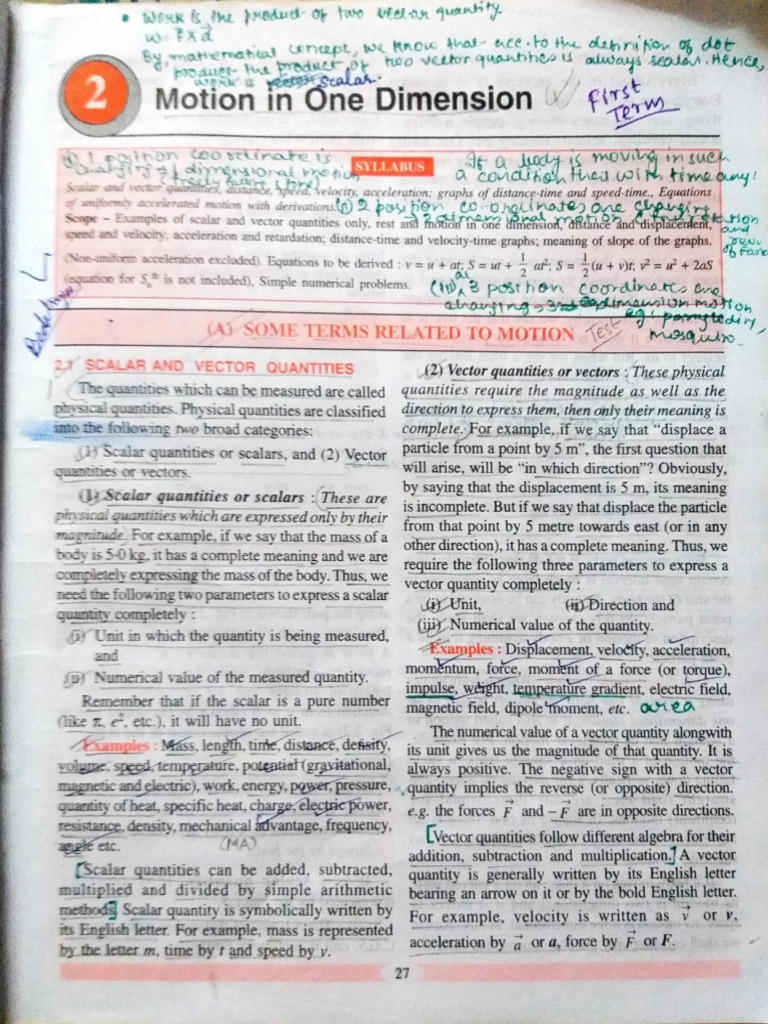 • Work is the product of two vector quantity
W = F × d
By mathematical concept, we know that acc. to the definition of dot
product the product of two vector quantities is always scalar. Hence,
work is scalar.
2
Motion in One Dimension
First
Term
(i) 1 position coordinate is
changing → 1 dimensional motion
freely falling stone
If a body is moving in such
a condition
with time any
SYLLABUS
Scalar and vector quantities, distance, speed, velocity, acceleration; graphs of distance-time and speed-time., Equations
of uniformly accelerated motion with derivations.
(ii) 2 position co-ordinates are changing
→ 2 dimensional motion
Scope – Examples of scalar and vector quantities only, rest and motion in one dimension, distance and displacement,
speed and velocity; acceleration and retardation; distance-time and velocity-time graphs; meaning of slope of the graphs.
(Non-uniform acceleration excluded). Equations to be derived : v = u + at; S = ut + 1/2 at²; S = 1/2 (u + v)t; v² = u² + 2aS
(equation for Sₙᵗʰ is not included), Simple numerical problems.
(iii) all 3 position coordinates are
changing → 3 dimension motion
eg:
mosquito.
(A) SOME TERMS RELATED TO MOTION
Test
2.1 SCALAR AND VECTOR QUANTITIES
The quantities which can be measured are called
physical quantities. Physical quantities are classified
into the following two broad categories:
(1) Scalar quantities or scalars, and (2) Vector
quantities or vectors.
(1) Scalar quantities or scalars : These are
physical quantities which are expressed only by their
magnitude. For example, if we say that the mass of a
body is 5·0 kg, it has a complete meaning and we are
completely expressing the mass of the body. Thus, we
need the following two parameters to express a scalar
quantity completely :
(i) Unit in which the quantity is being measured,
and
(ii) Numerical value of the measured quantity.
Remember that if the scalar is a pure number
(like π, e², etc.), it will have no unit.
Examples : Mass, length, time, distance, density,
volume, speed, temperature, potential (gravitational,
magnetic and electric), work, energy, power, pressure,
quantity of heat, specific heat, charge, electric power,
resistance, density, mechanical advantage, frequency,
angle etc.
(MA)
[Scalar quantities can be added, subtracted,
multiplied and divided by simple arithmetic
methods] Scalar quantity is symbolically written by
its English letter. For example, mass is represented
by the letter m, time by t and speed by v.
(2) Vector quantities or vectors : These physical
quantities require the magnitude as well as the
direction to express them, then only their meaning is
complete. For example, if we say that “displace a
particle from a point by 5 m”, the first question that
will arise, will be “in which direction”? Obviously,
by saying that the displacement is 5 m, its meaning
is incomplete. But if we say that displace the particle
from that point by 5 metre towards east (or in any
other direction), it has a complete meaning. Thus, we
require the following three parameters to express a
vector quantity completely :
(i) Unit, (ii) Direction and
(iii) Numerical value of the quantity.
Examples : Displacement, velocity, acceleration,
momentum, force, moment of a force (or torque),
impulse, weight, temperature gradient, electric field,
magnetic field, dipole moment, etc. area
The numerical value of a vector quantity alongwith
its unit gives us the magnitude of that quantity. It is
always positive. The negative sign with a vector
quantity implies the reverse (or opposite) direction.
e.g. the forces F⃗ and –F⃗ are in opposite directions.
[Vector quantities follow different algebra for their
addition, subtraction and multiplication.] A vector
quantity is generally written by its English letter
bearing an arrow on it or by the bold English letter.
For example, velocity is written as v⃗ or v,
acceleration by a⃗ or a, force by F⃗ or F.
27